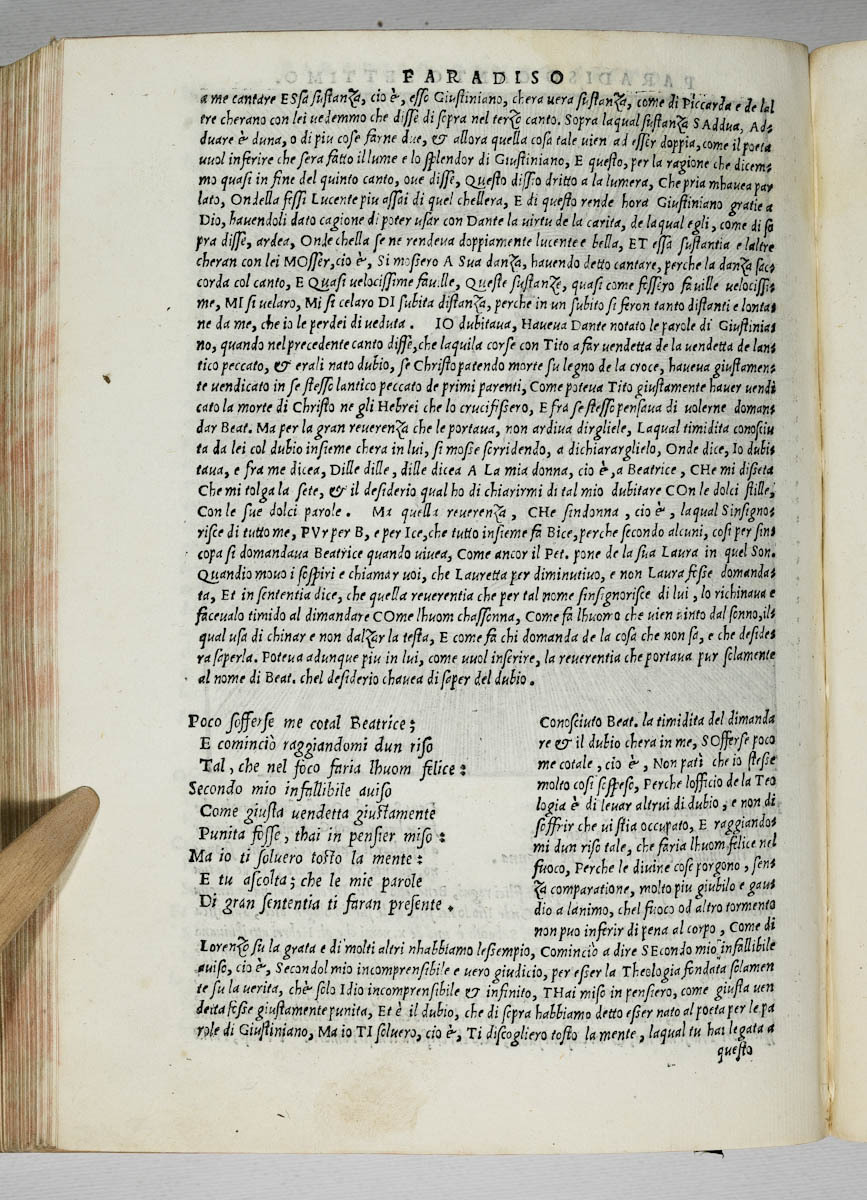 PARADISO
a me cantare ESsa sustanza, cio è, esso Giustiniano, chera uera sustanza, come di Piccarda e de lal
tre cherano con lei uedemmo che disse di sopra nel terzo canto. Sopra laqual sustanza S Addua, Ad-
duare è duna, o di piu cose farne due, & allora quella cosa tale uien ad esser doppia, come il poeta
uuol inferire che sera fatto il lume e lo splendor di Giustiniano, E questo, per la ragione che dicem-
mo quasi in fine del quinto canto, oue disse, Questo dissio dritto a la lumera, Che pria mhauea par
lato, Ondella fessi Lucente piu assai di quel chellera, E di questo rende hora Giustiniano gratie a
Dio, hauendoli dato cagione di poter usar con Dante la uirtu de la carita, de laqual egli, come di so
pra disse, ardea, Onde chella se ne rendeua doppiamente lucente e bella, ET essa sustantia e laltre
cheran con lei MOsser, cio è, Si mosiero A Sua danza, hauendo detto cantare, perche la danza sac-
corda col canto, E Quasi uelocissime fauille, Queste sustanze, quasi come fessero fauille uelocissi-
me, MI si uelaro, Mi si celaro DI subita distanza, perche in un subito si feron tanto distanti e lonta-
ne da me, che io le perdei di ueduta. IO dubitaua, Haueua Dante notato le parole di Giustinia-
no, quando nel precedente canto disse, che laquila corse con Tito a far uendetta de la uendetta de lan-
tico peccato, & erali nato dubio, se Christo patendo morte su legno de la croce, haueua giustamen-
te uendicato in se stesso lantico peccato de primi parenti, Come poteua Tito giustamente hauer uendi
cato la morte di Christo ne gli Hebrei che lo crucifisiero, E fra se stesso pensaua di uolerne doman-
dar Beat. Ma per la gran reuerenza che le portaua, non ardiua dirgliele, Laqual timidita conosciu
ta da lei col dubio insieme chera in lui, si mosse sorridendo, a dichiararglielo, Onde dice, Io dubi-
taua, e fra me dicea, Dille dille, dille dicea A La mia donna, cio è, a Beatrice, CHe mi disseta
Che mi tolga la sete, & il desiderio qual ho di chiarirmi di tal mio dubitare COn le dolci stille,
Con le sue dolci parole. Ma quella reuerenza, CHe sindonna, cio è, laqual Sinsigno-
risce di tutto me, PVr per B, e per Ice, che tutto insieme fa Bice, perche secondo alcuni, cosi per sin-
copa si domandaua Beatrice quando uiuea, Come ancor il Pet. pone de la sua Laura in quel Son.
Quandio mouo i sospiri e chiamar uoi, che Lauretta per diminutiuo, e non Laura fosse domanda-
ta, Et in sententia dice, che quella reuerentia che per tal nome sinsignorisce di lui, lo richinaua e
faceualo timido al dimandare COme lhuom chassonna, Come fa lhuomo che uien uinto dal sonno, il-
qual usa di chinar e non dalzar la testa, E come fa chi domanda de la cosa che non sa, e che deside-
ra saperla. Poteua adunque piu in lui, come uuol inferire, la reuerentia che portaua pur solamente
al nome di Beat. chel desiderio chauea di saper del dubio.
Poco sofferse me cotal Beatrice;
E cominciò raggiandomi dun riso
Tal, che nel foco faria lhuom felice:
Secondo mio infallibile auiso
Come giusta uendetta giustamente
Punita fosse, thai in pensier miso:
Ma io ti soluero tosto la mente:
E tu ascolta; che le mie parole
Di gran sententia ti faran presente.
Conosciuto Beat. la timidita del dimanda
re & il dubio chera in me, SOfferse poco
me cotale, cio è, Non patì che io stessе
molto cosi sospeso, Perche lofficio de la Teo
logia è di leuar altrui di dubio, e non di
soffrir che ui stia occupato, E raggiando-
mi dun riso tale, che faria lhuom felice nel
fuoco, Perche le diuine cose porgono, sen-
za comparatione, molto piu giubilo e gau-
dio a lanimo, chel fuoco od altro tormento
non puo inferir di pena al corpo, Come di
Lorenzo su la grata e di molti altri nhabbiamo lessempio, Cominciò a dire SEcondo mio infallibile
auiso, cio è, Secondol mio incomprensibile e uero giudicio, per essier la Theologia fondata solamen
te su la uerita, chè solo Idio incomprensibile & infinito, THai miso in pensiero, come giusta uen
detta fosse giustamente punita, Et è il dubio, che di sopra habbiamo detto essier nato al poeta per le pa
role di Giustiniano, Ma io TI soluero, cio è, Ti discogliero tosto la mente, laqual tu hai legata a
questo